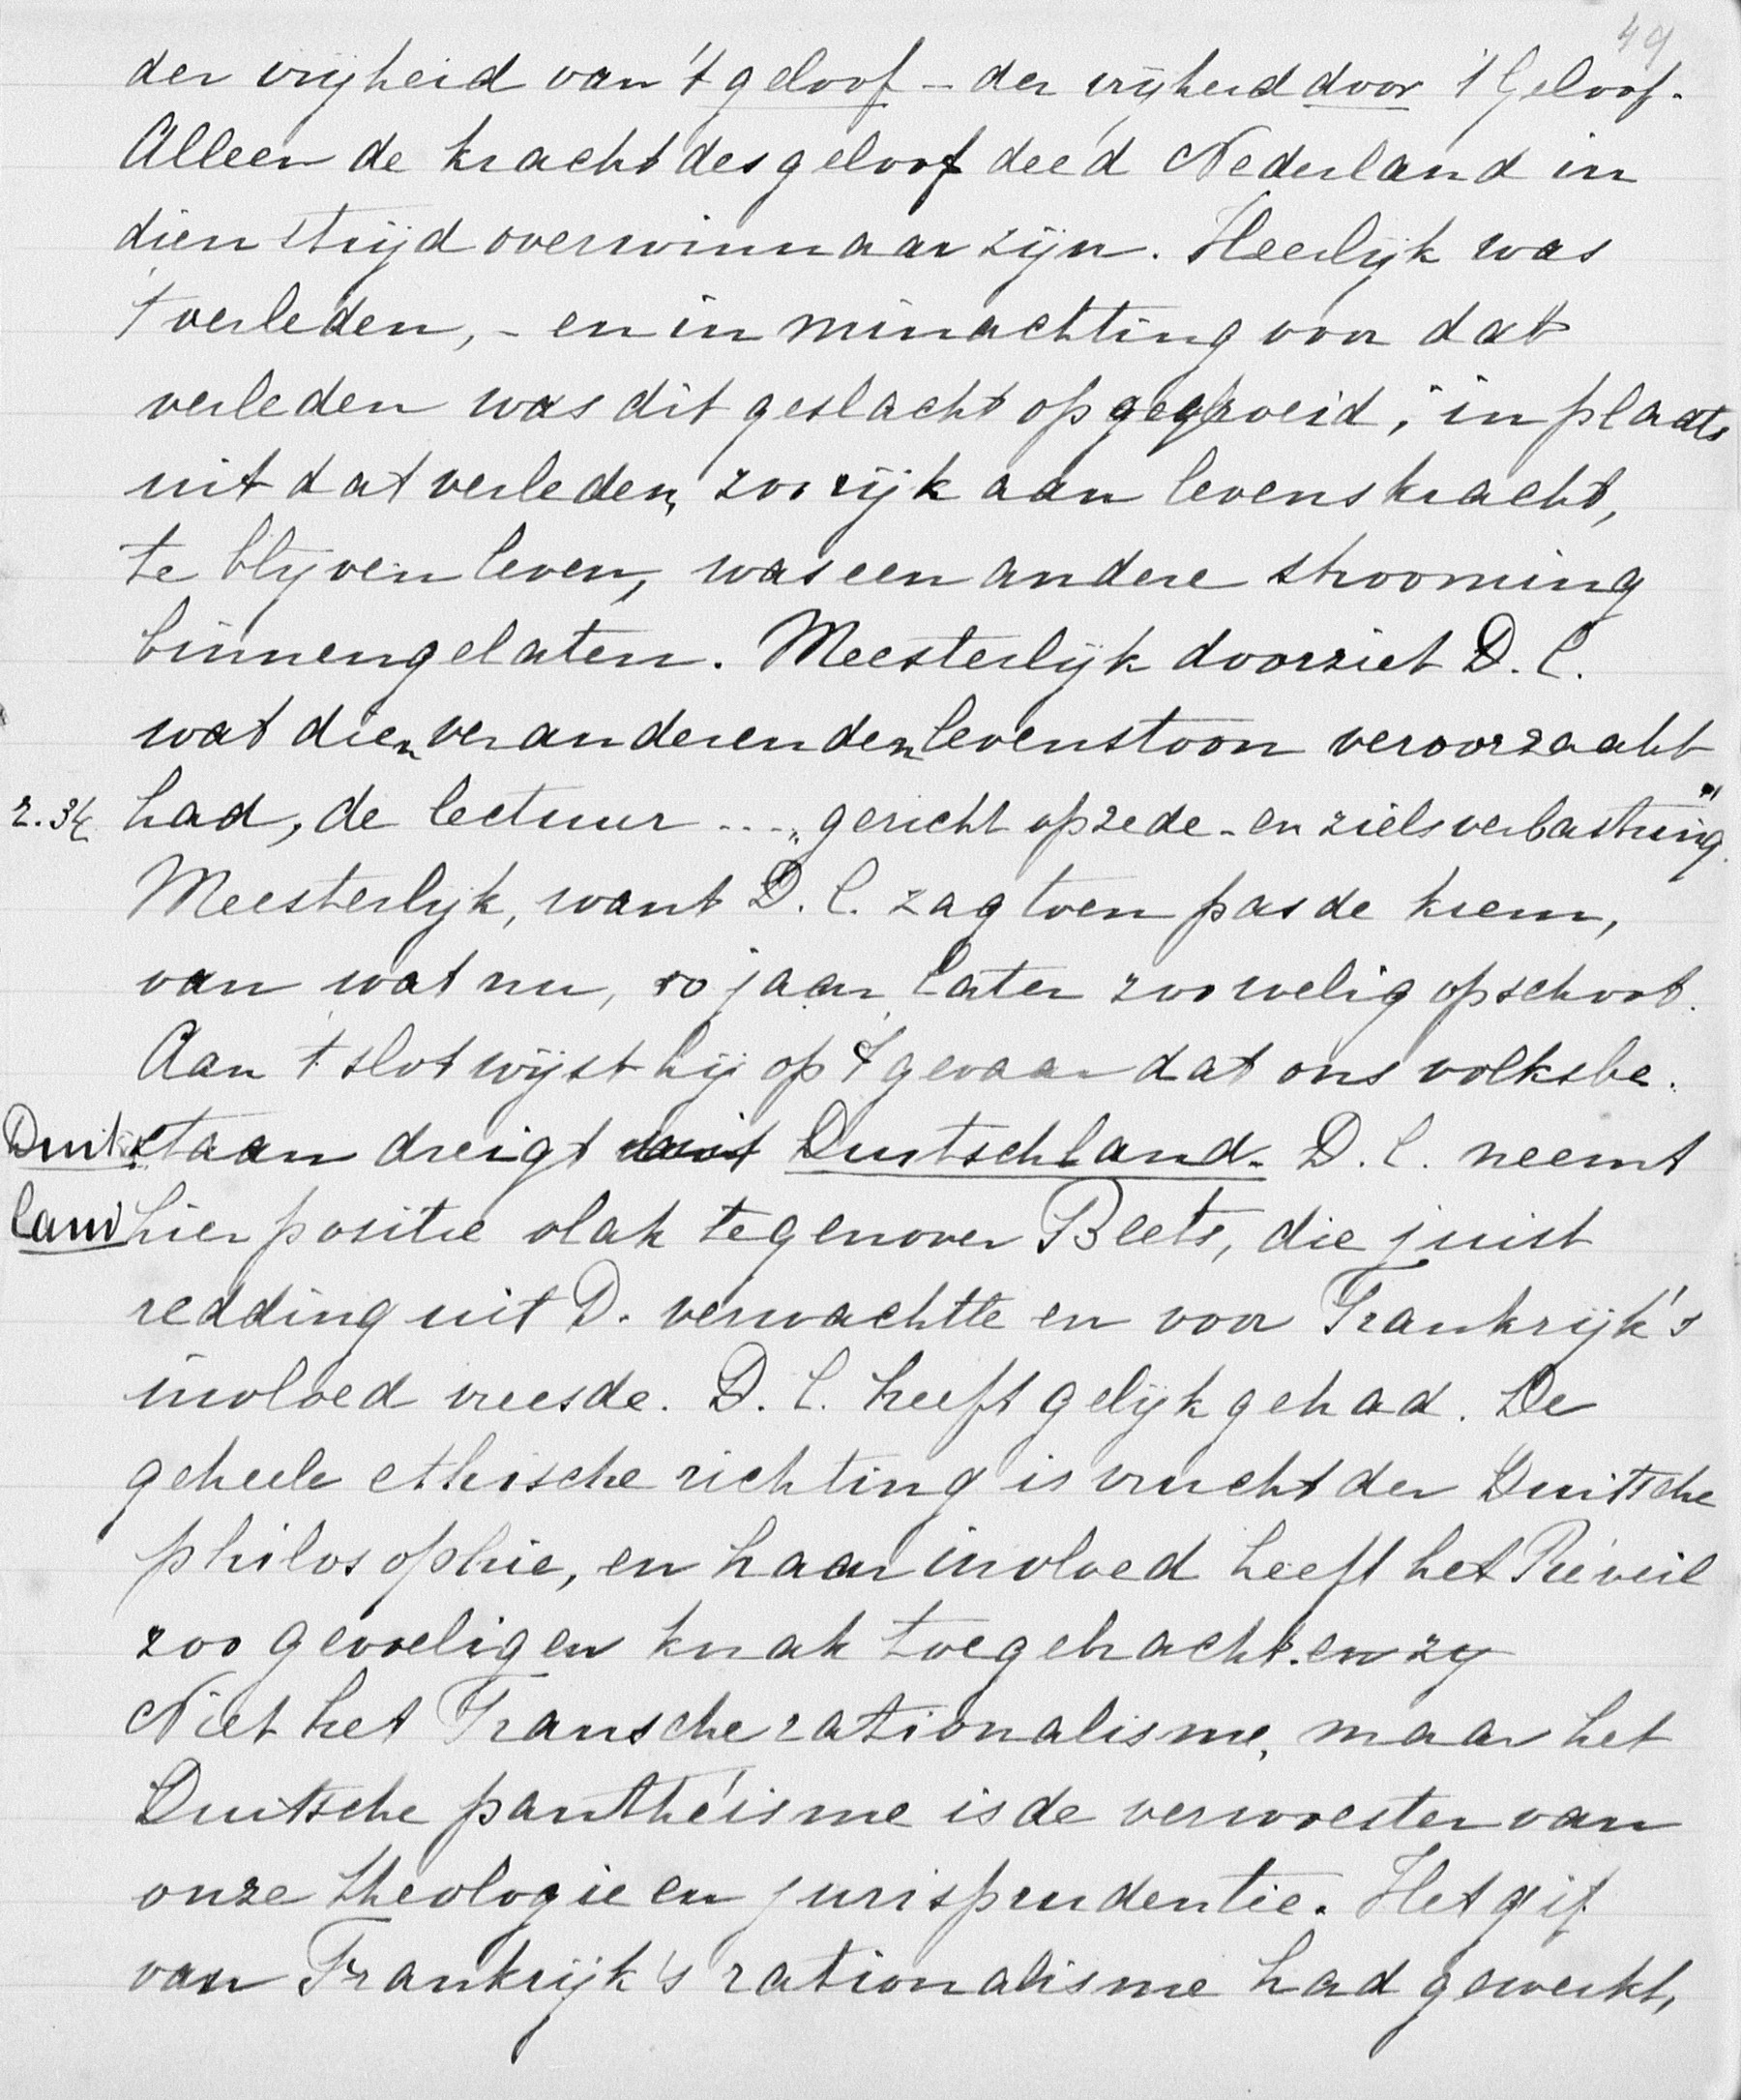 49
der vrijheid van 't geloof – der vrijheid door 't Geloof.
Alleen de kracht des geloof deed Nederland in
dien strijd overwinnaar zijn. Heerlijk was
't verleden, - en in minachting voor dat
verleden was dit geslacht opgegroeid, in plaats
uit dat verleden, zoo rijk aan levenskracht,
te blijven leven, was een andere strooming
binnengelaten. Meesterlijk doorziet D. C.
wat dien veranderenden levenstoon veroorzaakt
had, de lectuur .... „gericht op zede- en zielsverbastering."
Meesterlijk, want D. C. zag toen pas de kiem,
van wat nu, 50 jaar later zoo welig opschoot.
Aan 't slot wijst hij op 't gevaar dat ons volksbe-
Duitsch
staan dreigt uit Duitschland. D. C. neemt
land
hier positie vlak tegenover Beets, die juist
redding uit D. verwachtte en voor Frankrijk's
invloed vreesde. D. C. heeft gelijk gehad. De
geheele ethische richting is vrucht der Duitsche
philosophie, en haar invloed heeft het Réveil
zoo gevoeligen knak toegebracht. en zy
Niet het Fransche rationalisme, maar het
Duitsche panthéisme is de verwoester van
onze theologie en jurisprudentie. Het gif
van Frankrijk's rationalisme had gewerkt,